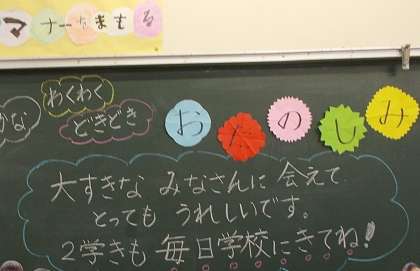 マナーをまもる
かな
わくわく
どきどき
おたのしみ
大すきな みなさんに 会えて
とっても うれしいです。
2学きも 毎日学校にきてね!